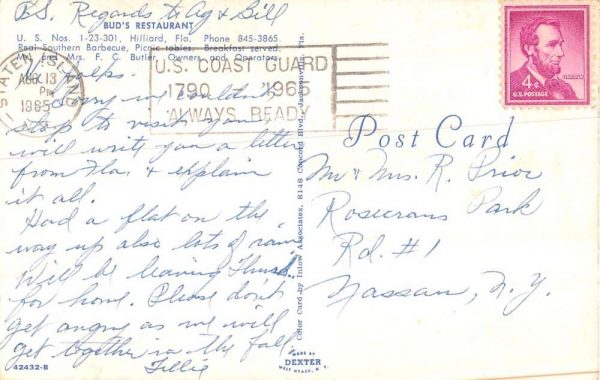 P.S. Regards to Ag & Bill
BUD'S RESTAURANT
U. S. Nos. 1-23-301, Hilliard, Fla. Phone 845-3865.
Real Southern Barbecue, Picnic tables. Breakfast served.
Mr. and Mrs. F. C. Butler, Owners and Operators.
STATEN ISLAND
AUG 13
PM
1965
U.S. COAST GUARD
1790 1965
ALWAYS READY
LINCOLN
4¢
U.S. POSTAGE
Hi folks.
Sorry we couldn't
stop to visit you,
will write you a letter
from Fla. & explain
it all.
Had a flat on the
way up also lots of rain
Will be leaving Thurs.
for home. Please don't
get angry as we will
get together in the fall.
Tillie
42432-B
Color Card by Inlow Associates, 8146 Concord Blvd., Jacksonville, Fla.
MADE BY
DEXTER
WEST NYACK, N. Y.
Post Card
Mr & Mrs. R. Prior
Rosecrans Park
Rd. #1
Nassau, N.Y.